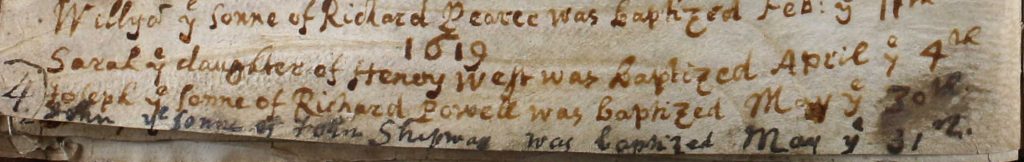 Willyam yᵉ sonne of Richard Pearce was baptized Feb: yᵉ
1619
Sarah yᵉ daughter of Henry West was baptized April yᵉ 4th
4 Joseph yᵉ sonne of Richard Powell was baptized May yᵉ 30th.
John, yᵉ sonne of John Shipway was baptized May yᵉ 31th.